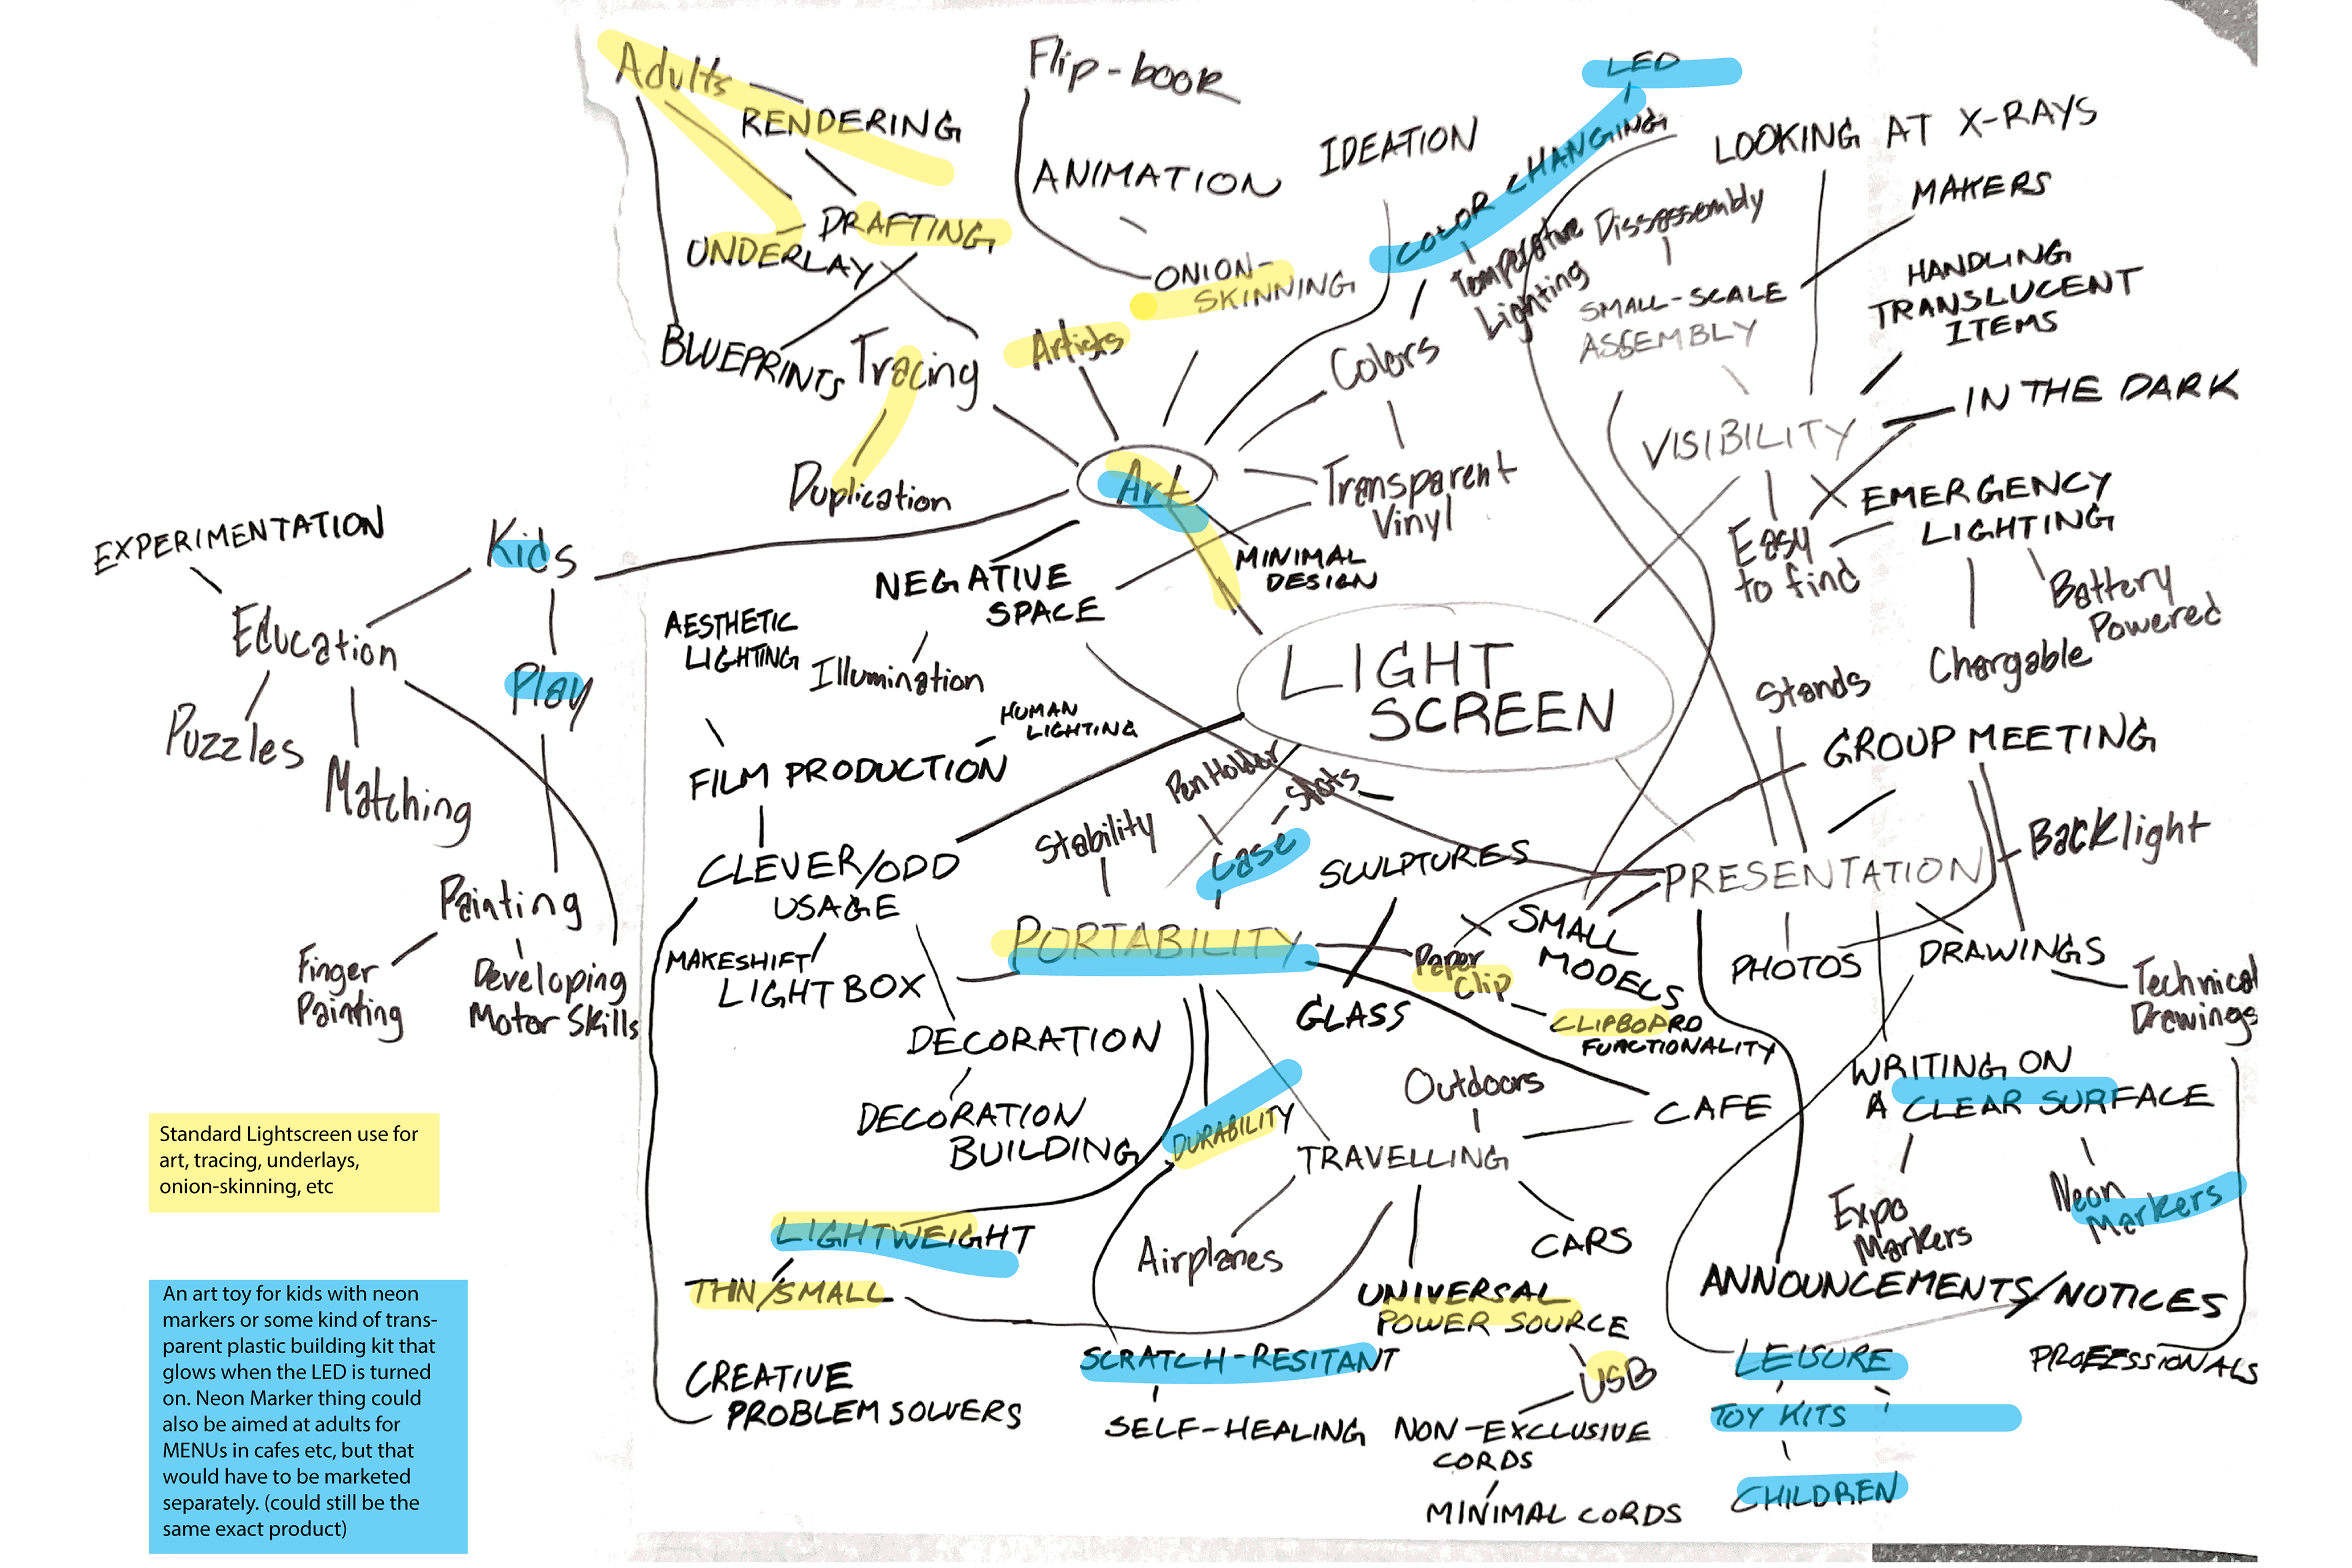 Adults
RENDERING
DRAFTING
UNDERLAY
BLUEPRINTS
Tracing
Duplication
Flip-book
ANIMATION
ONION-
SKINNING
Artists
IDEATION
LED
COLOR CHANGING
Temperature
Lighting
Colors
Transparent
Vinyl
Art
MINIMAL
DESIGN
NEGATIVE
SPACE
Illumination
LOOKING AT X-RAYS
MAKERS
Dissassembly
SMALL-SCALE
ASSEMBLY
HANDLING
TRANSLUCENT
ITEMS
IN THE DARK
VISIBILITY
EMERGENCY
LIGHTING
Easy
to find
Battery
Powered
Chargable
EXPERIMENTATION
Kids
Education
Play
Puzzles
Matching
Painting
Finger
Painting
Developing
Motor Skills
LIGHT
SCREEN
AESTHETIC
LIGHTING
HUMAN
LIGHTING
FILM PRODUCTION
CLEVER/ODD
USAGE
MAKESHIFT
LIGHT BOX
DECORATION
DECORATION
BUILDING
CREATIVE
PROBLEM SOLVERS
Pen Holder
Slots
Stability
Case
PORTABILITY
SCULPTURES
GLASS
Paper
Clip
CLIPBOARD
FUNCTIONALITY
SMALL
MODELS
Stands
GROUP MEETING
Backlight
PRESENTATION
PHOTOS
DRAWINGS
Technical
Drawings
WRITING ON
A CLEAR SURFACE
Expo
Markers
Neon
Markers
ANNOUNCEMENTS/NOTICES
PROFESSIONALS
LEISURE
TOY KITS
CHILDREN
DURABILITY
Outdoors
CAFE
TRAVELLING
Airplanes
CARS
UNIVERSAL
POWER SOURCE
USB
NON-EXCLUSIVE
CORDS
MINIMAL CORDS
LIGHTWEIGHT
THIN/SMALL
SCRATCH-RESITANT
SELF-HEALING
Standard Lightscreen use for
art, tracing, underlays,
onion-skinning, etc
An art toy for kids with neon
markers or some kind of trans-
parent plastic building kit that
glows when the LED is turned
on. Neon Marker thing could
also be aimed at adults for
MENUs in cafes etc, but that
would have to be marketed
separately. (could still be the
same exact product)